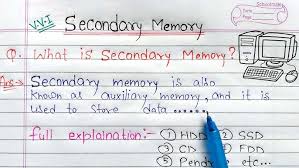 V.V.I
Secondary Memory
Q. What is Secondary Memory?
Ans:- Secondary memory is also
known as auxiliary memory, and it is
used to store data......
full explaination:- ① HDD ② SSD
③ CD ④ FDD
⑤ Pendrive etc...